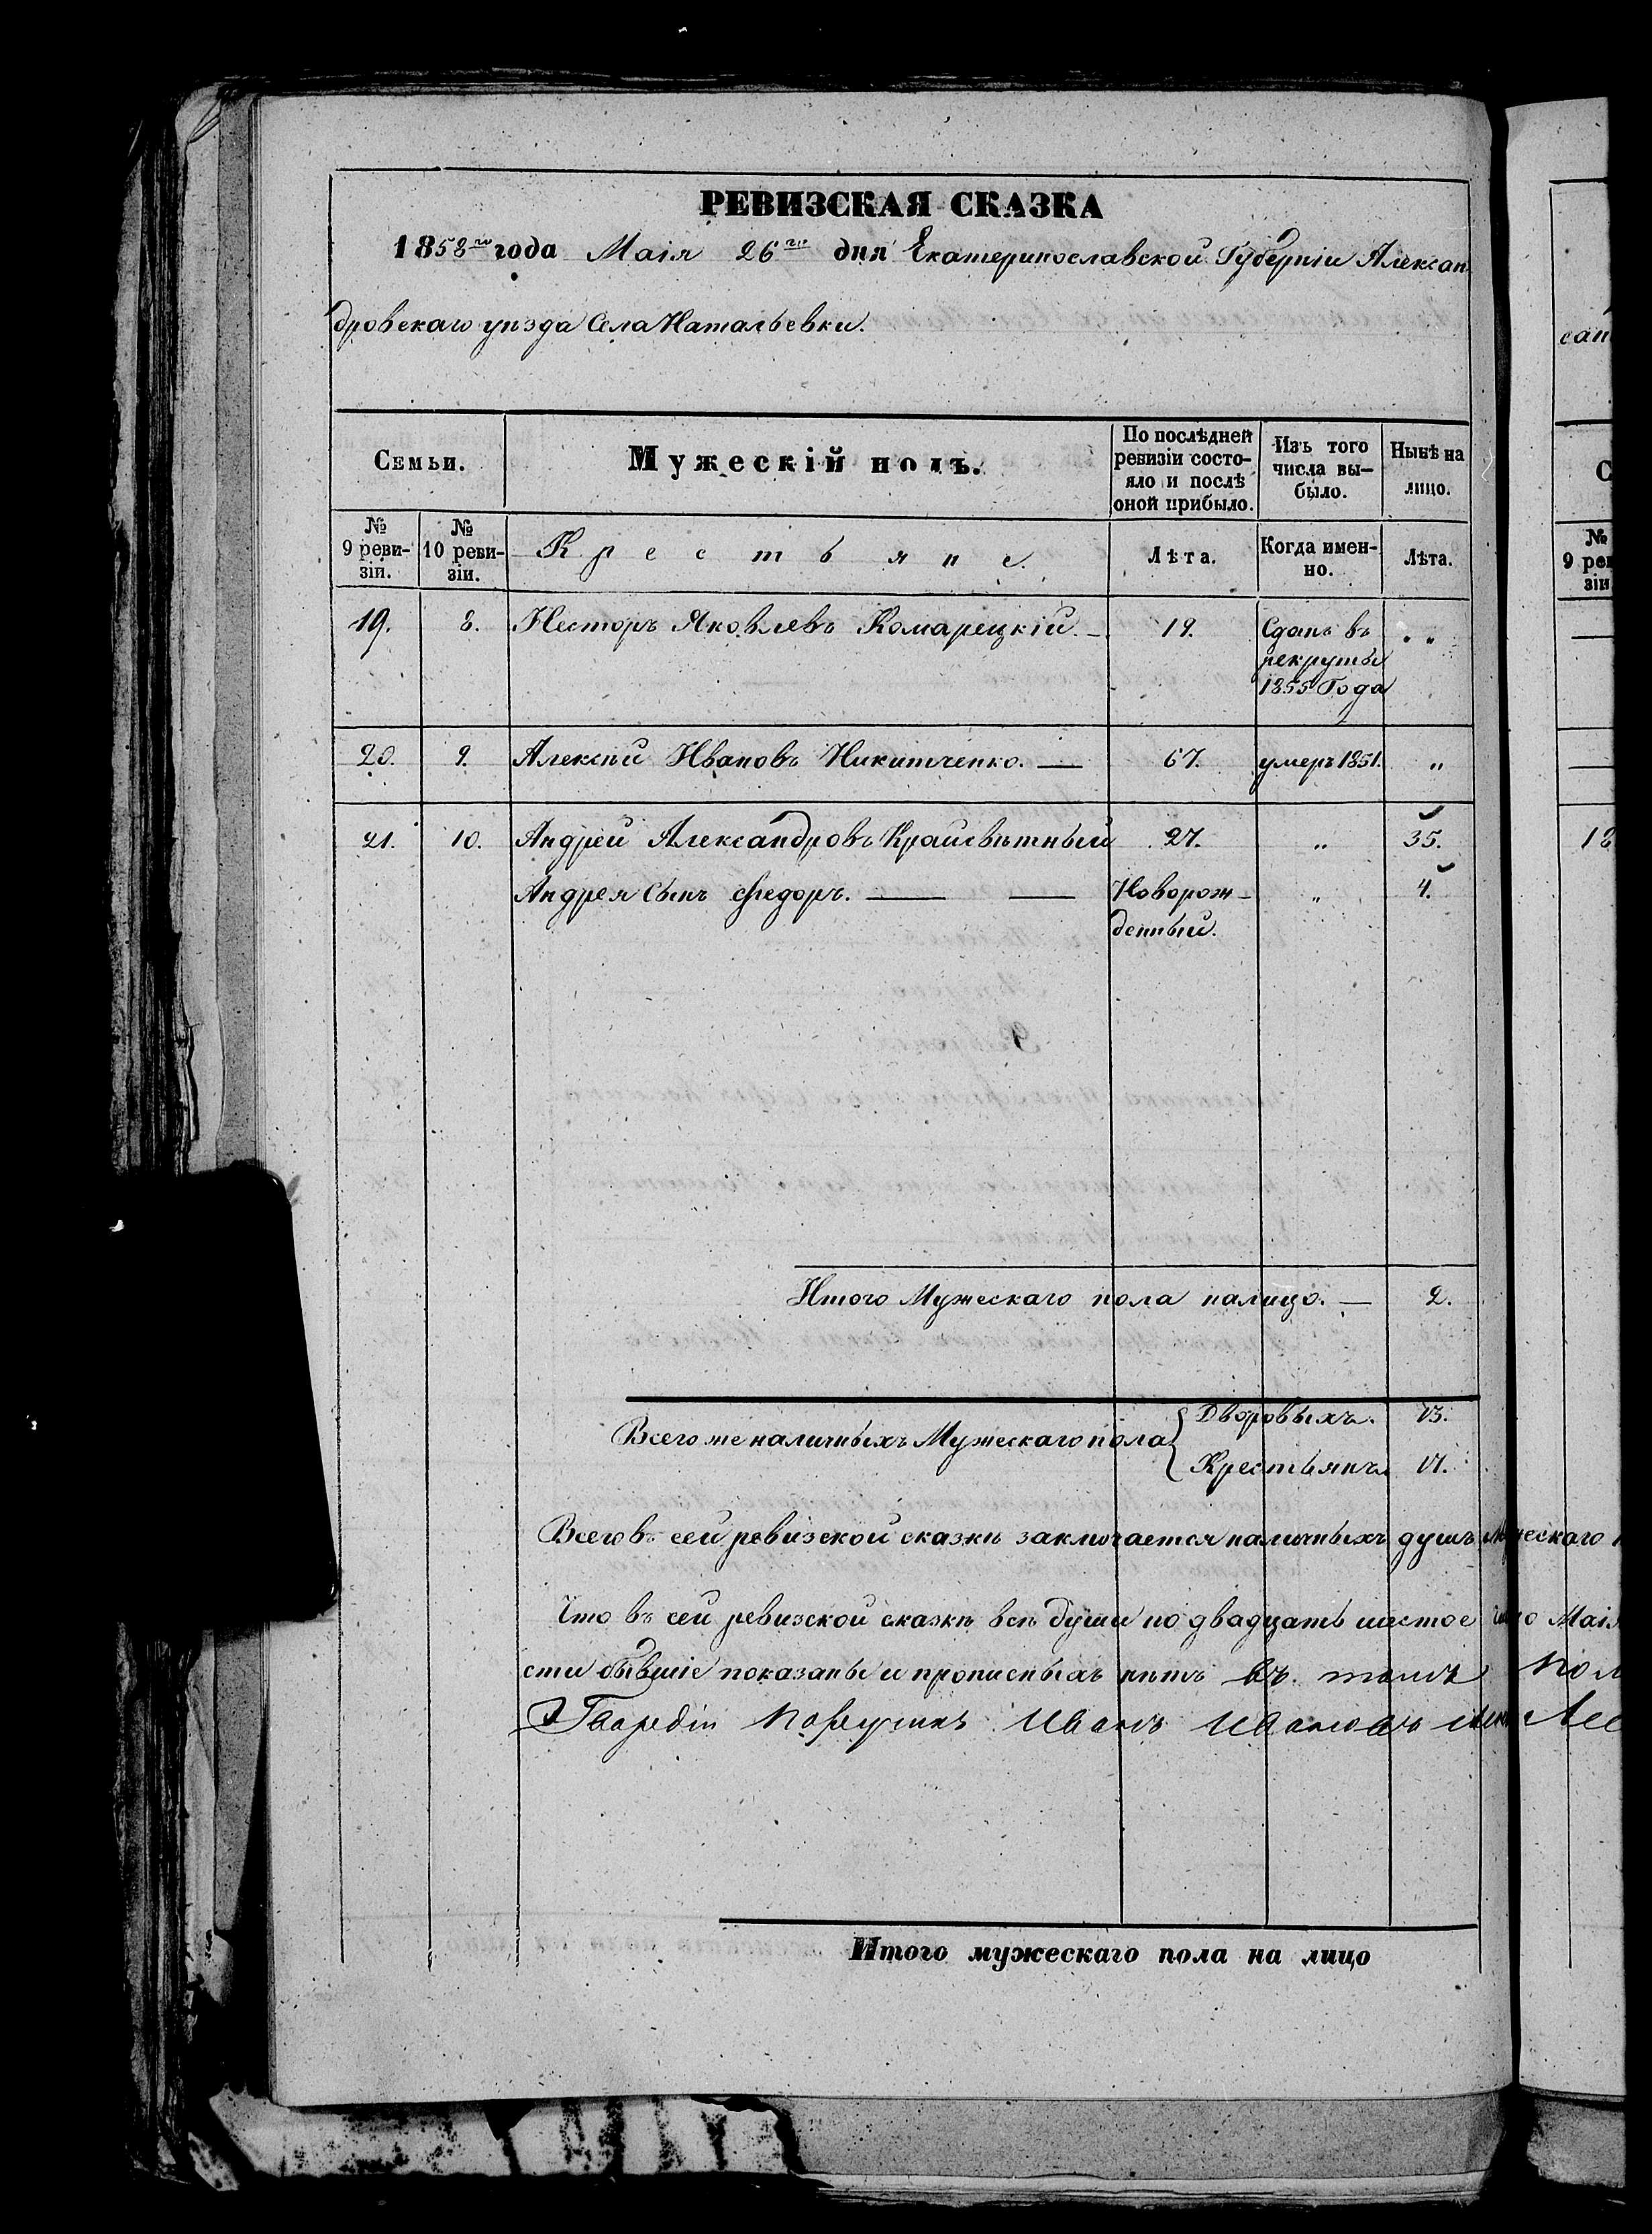 РЕВИЗСКАЯ СКАЗКА
1858го года Маія 26го дня Екатеринославской Губерніи Алексан
дровскаго уѣзда Села Натальевки.
Семьи.
Мужескій полъ.
По послѣдней ревизіи состо-
яло и послѣ
оной прибыло.
Изъ того
числа вы-
было.
Нынѣ на
лицо.
№
9 реви-
зіи.
№
10 реви-
зіи.
Крестьяне.
Лѣта.
Когда имен-
но.
Лѣта.
19. 8. Несторъ Яковлевъ Комарецкій. — 19. Сданъ въ „
рекруты
1855 Года
20. 9. Алексѣй Ивановъ Никитченко. — 67. умеръ 1851. „
21. 10. Андрей Александровъ Крайсвѣтный 27. „ 35.
Андрея Сынъ Федоръ. — — Новорож- „ 4.
денный.
Итого Мужескаго пола налицо. — 2.
Всего же наличныхъ Мужескаго пола
Дворовыхъ.
Крестьянъ
Всего въ сей ревизской сказкѣ заключается наличныхъ душъ Мужескаго
Что въ сей ревизской сказкѣ всѣ души по двадцать шестое число Маія
сти бывшіе показаны и прописныхъ нѣтъ въ томъ
Гвардіи Поручикъ Иванъ Ивановъ
Итого мужескаго пола на лицо
сан
С
№
9 рев
зіи